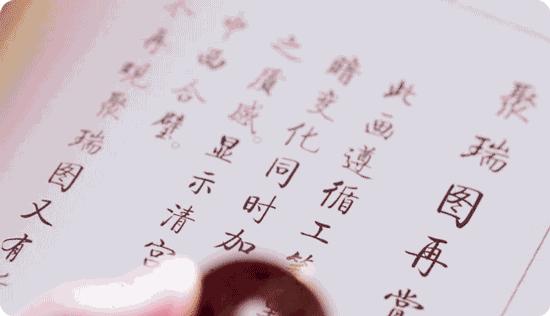 聚瑞图再赏
此画遵循工笔
暗变化同时加
之质感。显示清宫
中西合璧。
再观聚瑞图又有